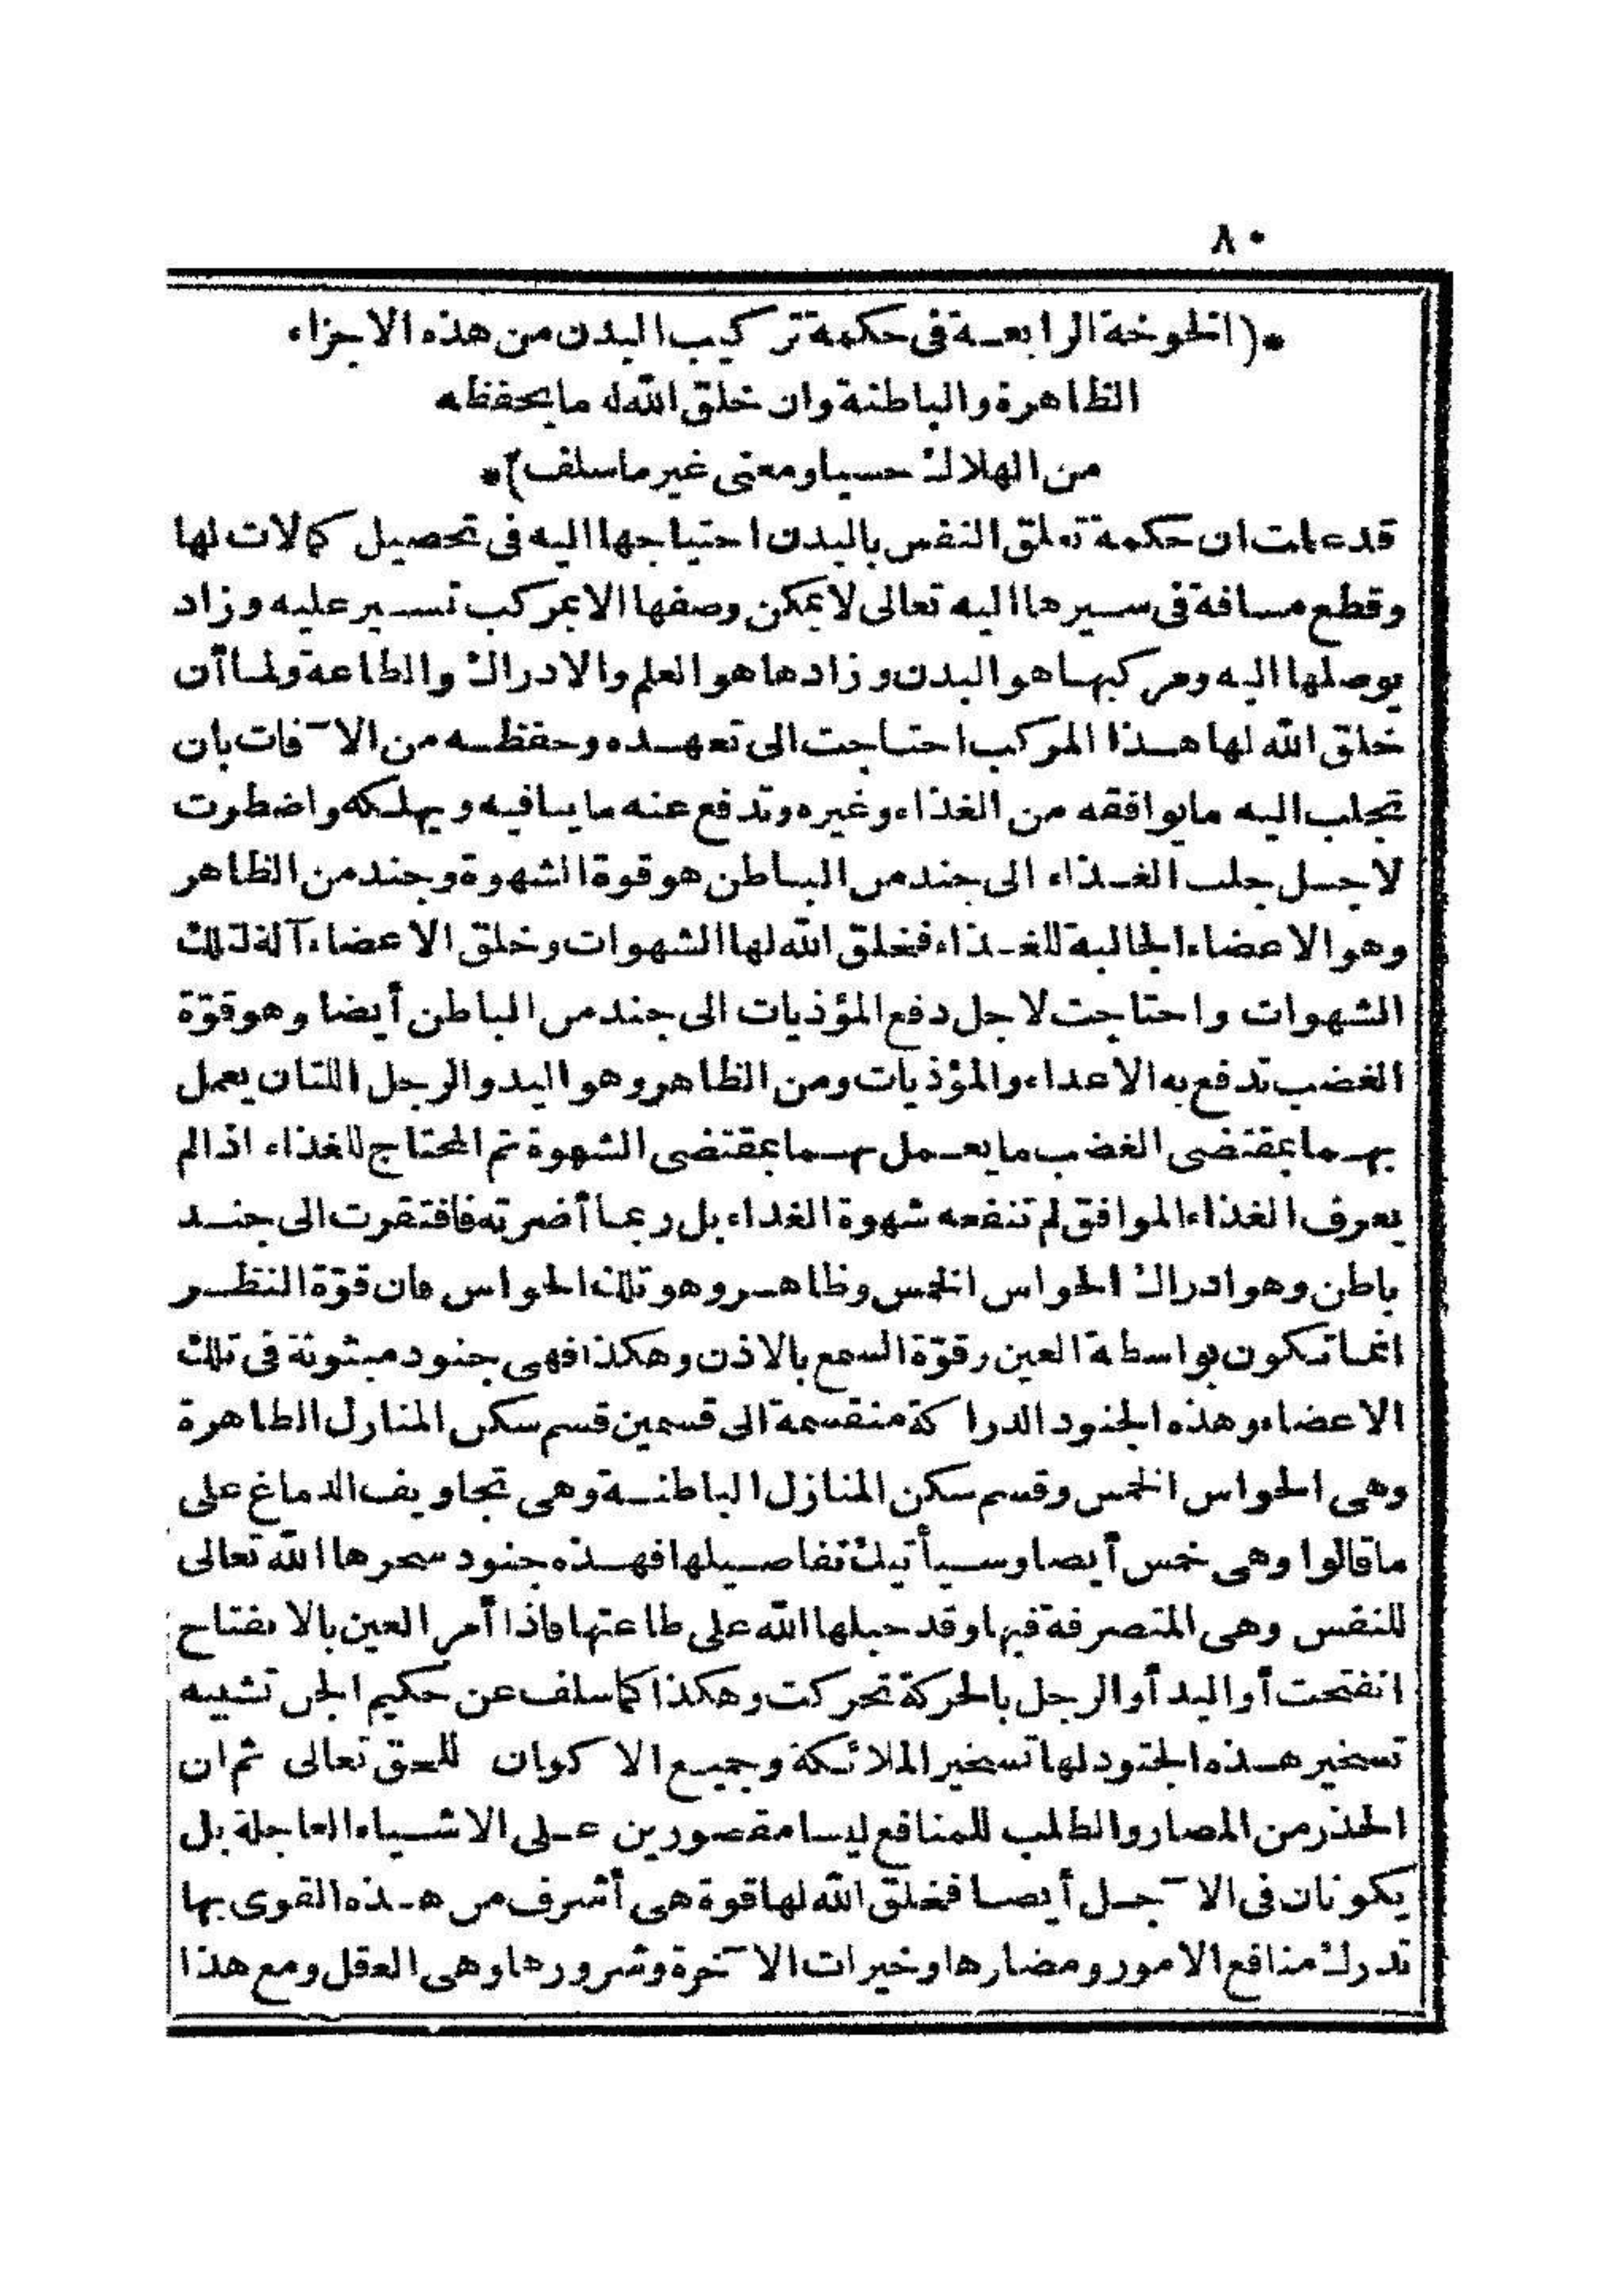 ٨٠
*(الخوخة الرابعة فى حكمة تركيب البدن من هذه الاجزاء
الظاهرة والباطنة وان خلق الله له ما يحفظه
من الهلاك حسيا ومعنى غير ما سلف)*
قد علمت ان حكمة تعلق النفس بالبدن احتياجها اليه فى تحصيل كمالات لها
وقطع مسافة فى سيرها اليه تعالى لا يمكن وصفها الا بمركب تسير عليه وزاد
يوصلها اليه ومركبها هو البدن وزادها هو العلم والادراك والطاعة ولما أن
خلق الله لها هذا المركب احتاجت الى تعهده وحفظه من الآفات بان
تجلب اليه ما يوافقه من الغذاء وغيره وتدفع عنه ما ينافيه ويهلكه واضطرت
لاجل جلب الغذاء الى جند من الباطن هو قوة الشهوة وجند من الظاهر
وهو الاعضاء الجالبة للغذاء فخلق الله لها الشهوات وخلق الاعضاء آلة لتلك
الشهوات واحتاجت لاجل دفع المؤذيات الى جند من الباطن أيضا وهو قوّة
الغضب تدفع به الاعداء والمؤذيات ومن الظاهر وهو اليد والرجل اللتان يعمل
بهما بمقتضى الغضب ما يعمل بهما بمقتضى الشهوة ثم المحتاج للغذاء اذا لم
يعرف الغذاء الموافق لم تنفعه شهوة الغداء بل ربما أضرته فافتقرت الى جند
باطن وهو ادراك الحواس الخمس وظاهر وهو تلك الحواس فان قوّة النظر
انما تكون بواسطة العين وقوّة السمع بالاذن وهكذا فهى جنود مبثوثة فى تلك
الاعضاء وهذه الجنود الدراكة منقسمة الى قسمين قسم سكن المنازل الظاهرة
وهى الحواس الخمس وقسم سكن المنازل الباطنة وهى تجاويف الدماغ على
ما قالوا وهى خمس أيضا وسيأتيك تفاصيلها فهذه جنود سخرها الله تعالى
للنفس وهى المتصرفة فيها وقد جبلها الله على طاعتها فاذا أمر العين بالانفتاح
انفتحت أو اليد أو الرجل بالحركة تحركت وهكذا كما سلف عن حكيم الجن تشبيه
تسخير هذه الجنود لها تسخير الملائكة وجميع الاكوان للحق تعالى ثم ان
الحذر من المضار والطلب للمنافع ليسا مقصورين على الاشياء العاجلة بل
يكونان فى الآجل أيضا فخلق الله لها قوة هى أشرف من هذه القوى بها
تدرك منافع الامور ومضارها وخيرات الآخرة وشرورها وهى العقل ومع هذا